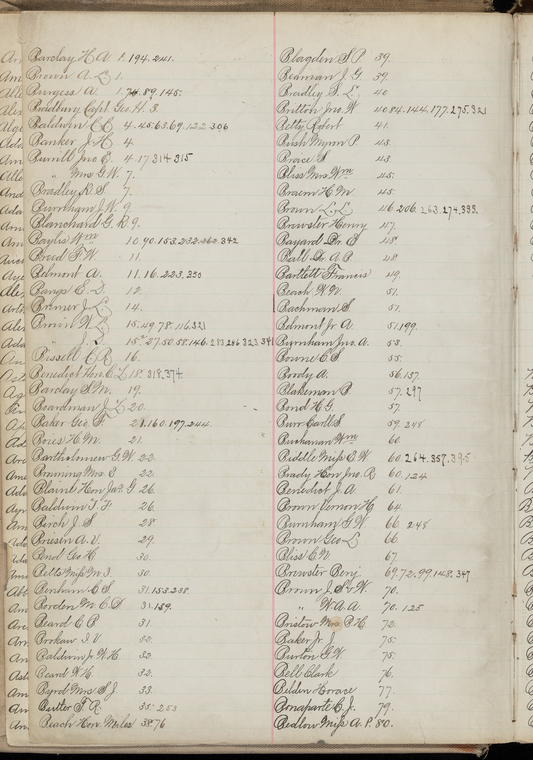 Barclay H A 1. 194. 241.
Brown A L 1.
Burgess A. 1. 74. 89. 145.
Bradbury Capt Geo. H. 3.
Baldwin C C 4. 45. 63. 69. 122. 306
Banker J. H. 4.
Burrill Jno E. 4. 17. 314 315
" Mrs G W. 7.
Bradley R. S. 7.
Burnham J. W. 9.
Blanchard G. R. 9.
Baylis Wm 10. 90. 153. 232. 342
Breed F. W. 11.
Belmont A. 11. 16. 223. 350
Bangs E. D. 12.
Bremer J L 14.
Brown W L 15. 49. 78. 116. 321
15. 37. 50. 58. 146. 283 286 323 341
Bissell C R 16.
Benedict Hon. E L 18. 318. 374
Barclay S. M. 19.
Boardman J L 20.
Baker Geo F 21. 160. 197. 244.
Bores H. M. 21.
Bartholomew G. W. 22.
Brunning Mrs E 22.
Blaine Hon Jas. G 26.
Baldwin T. H 26.
Birch J. S 28
A. V. 29.
Bend Geo H 30.
Betts Miss M. I. 30.
Benham C S. 31. 153. 238.
Borden M. C. D 31. 159.
Beard C P 31.
Brokaw I. V 32.
Baldwin Jr W. H. 32.
Beard W H. 32.
Byrd Mrs S. J. 33.
Butler F R. 35. 253
Beach Hon. Miles 38 76
Blagden S P 39.
Beaman J. G 39.
Bradley S. L. 40
Britton Jno. W 40. 84. 144. 177. 275. 321
Betty Robert 41.
Bush Mynn P 43.
Brace S 43.
Bliss Mrs Wm 45.
Braem H. M. 45.
Brown L. L. 46. 206. 263. 274. 395.
Brewster Henry 47.
Bayard Dr. E 48.
Ball Dr. A P 48
Bartlett Francis 49.
Beach W. N. 51.
Bachman S. 51.
Belmont Jr A. 51. 199.
Burnham Jno. A. 53.
Bowne C S 55.
Bondy A. 56. 157.
Blakeman B 57. 297
Bond H G. 57.
Burr Carll S 59. 245
Buchanan Wm 60.
Biddle Miss C. W 60. 264. 357. 395
Brady Hon Jno. R 60. 124
Benedict J. A 61.
Brown Vernon H 64.
Burnham G. W 66. 245
Brown Geo L 66
Bliss C N 67.
Brewster Benj 69. 72. 99. 148. 347
Brown J. S. & W. 70.
" W. A A. 70. 125
Bristow Mrs B H 72.
Baker Jr. J. 75.
Burton G W 75.
Bell Clark 76.
Belden Horace 77.
Bonaparte C. J. 79.
Bedlow Miss A. P. 80.